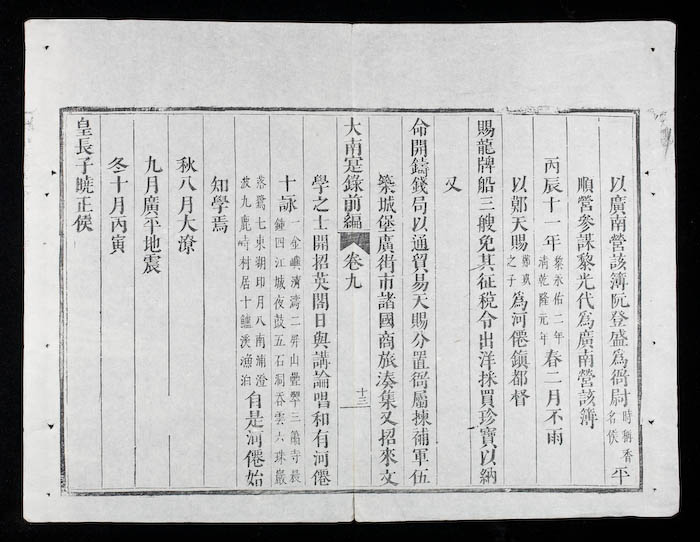 以廣南營該簿阮登盛爲衙尉時稱香名侯平
順營參謀黎光代爲廣南營該簿
丙辰十一年黎永佑二年清乾隆元年春二月不雨
以鄭天賜鄭玖之子爲河僊鎮都督
賜龍牌船三艘免其征稅令出洋採買珍寶以納
又
命開鑄錢局以通貿易天賜分置衙屬揀補軍伍
築城堡廣街市諸國商旅湊集又招來文
大南寔錄前編 卷九 十三
學之士開招英閣日與講論唱和有河僊
十詠一金嶼濤二屏山疊翠三蕭寺晨鐘四江城夜鼓五石洞吞雲六珠巖落鷺七東朔印月八南浦澄波九鹿峙村居十鱸溪漁泊自是河僊始
知學焉
秋八月大潦
九月廣平地震
冬十月丙寅
皇長子曉正侯